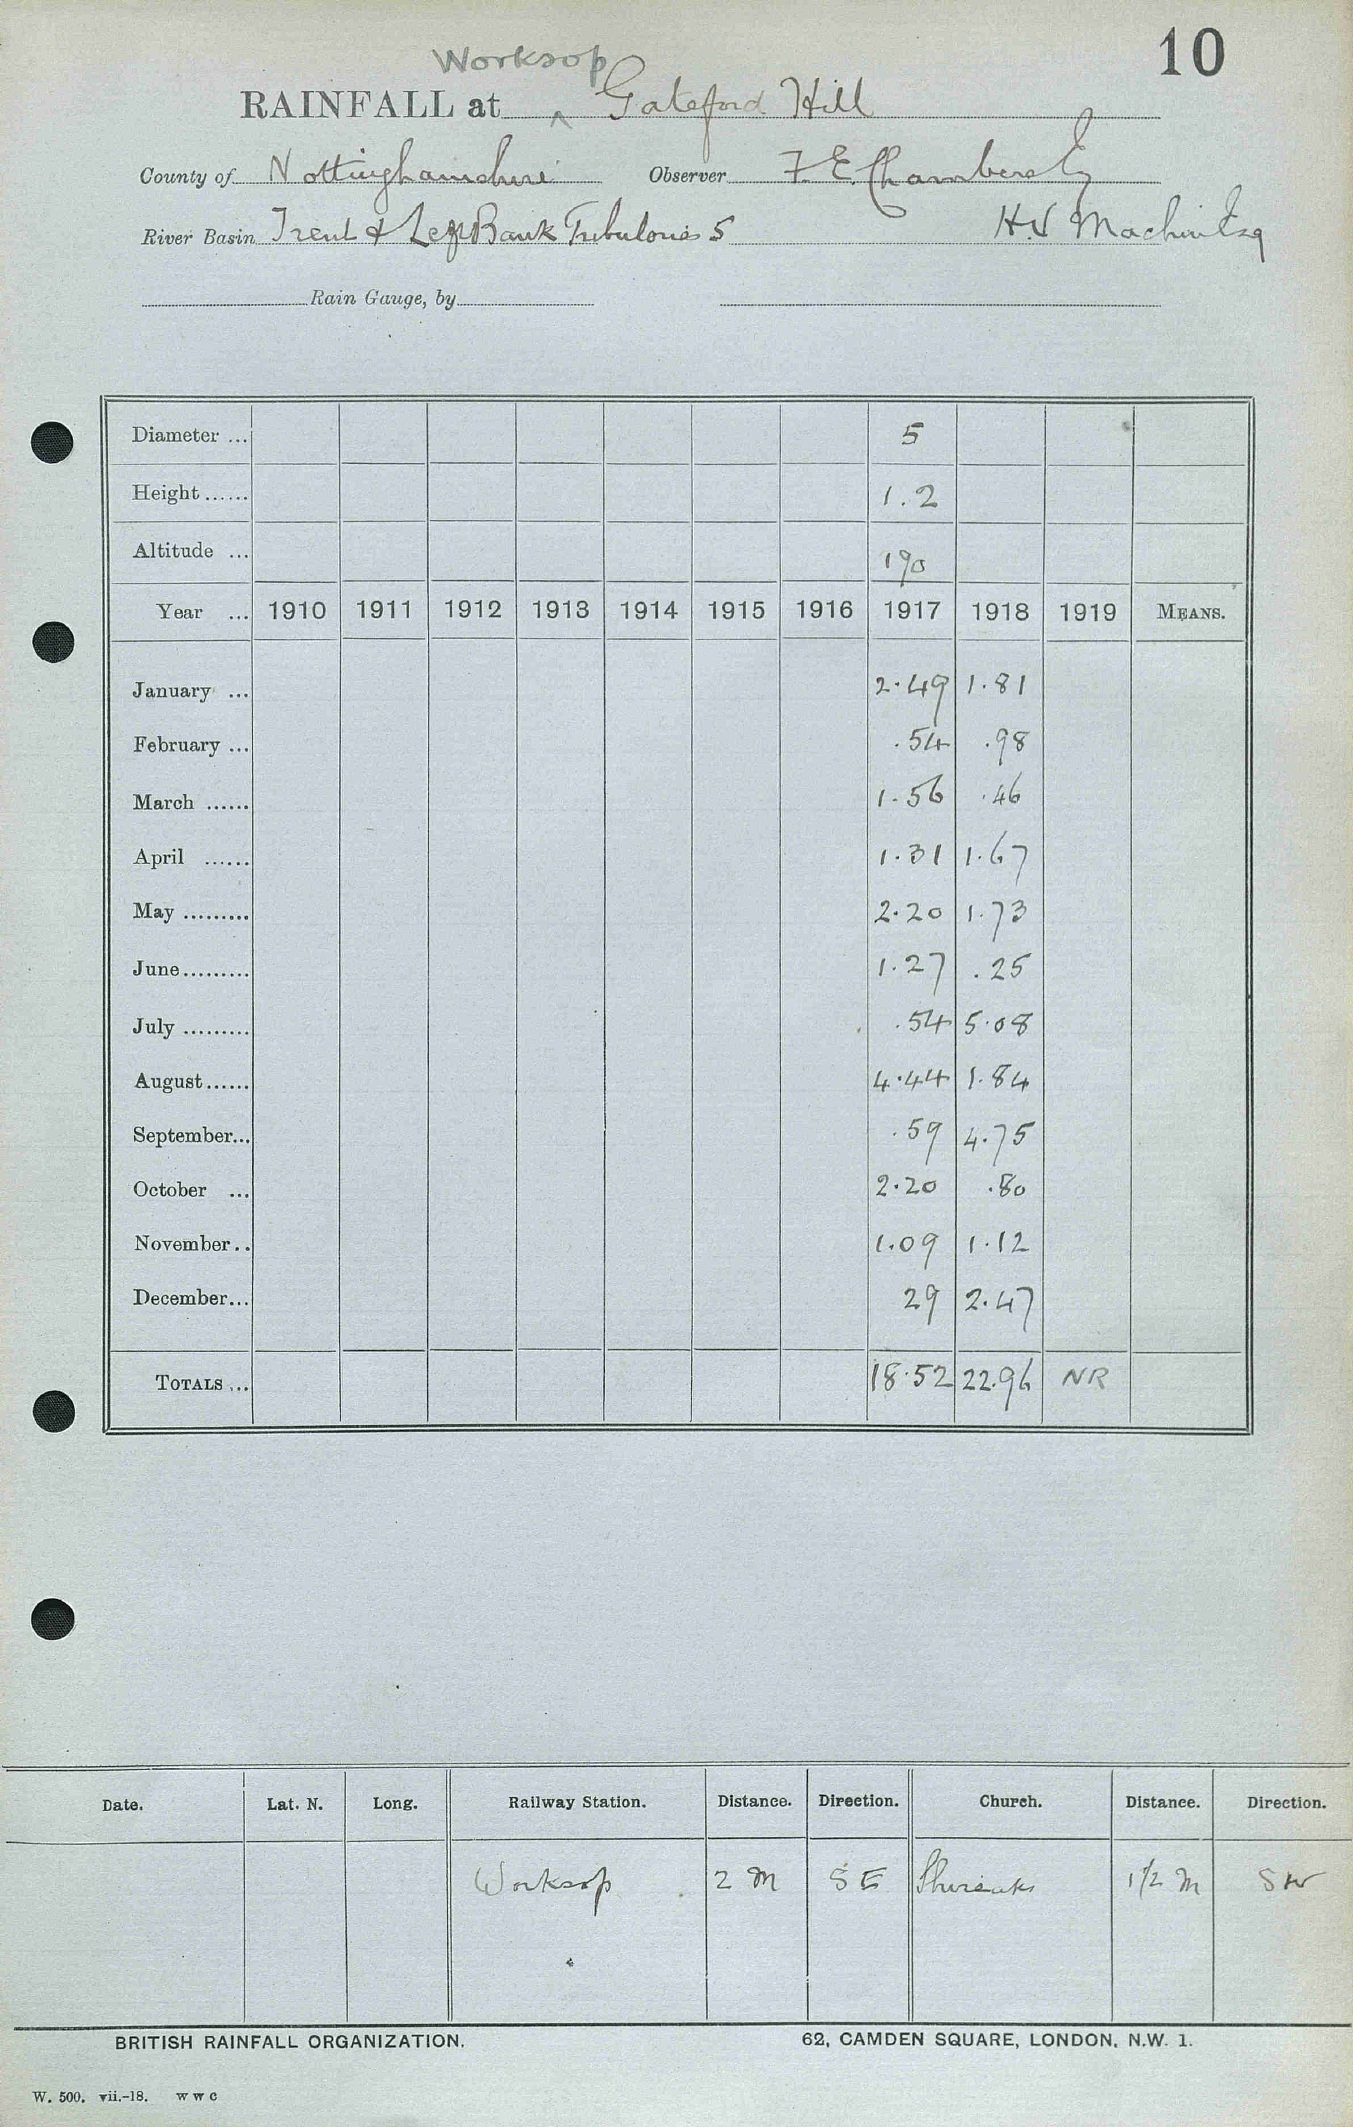 10
Worksop
RAINFALL at ^ Gateford Hill
County of Nottinghamshire Observer F. E. Chambers Esq
River Basin Trent & Left Bank Tributories 5 H.V Machin Esq
Rain Gauge, by
Diameter ... 5
Height ...... 1.2
Altitude ... 190
Year ... 1910 1911 1912 1913 1914 1915 1916 1917 1918 1919 MEANS.
January ... 2.49 1.81
February ... .54 .98
March ...... 1.56 .46
April ...... 1.31 1.67
May ......... 2.20 1.73
June ......... 1.27 .25
July ......... .54 5.08
August ...... 4.44 1.84
September... .59 4.75
October ... 2.20 .80
November.. 1.09 1.12
December... 29 2.47
TOTALS ... 18.52 22.96 NR
Date. Lat. N. Long. Railway Station. Distance. Direction. Church. Distance. Direction.
Worksop 2 m SE Shireoaks 1 1/2 m SW
BRITISH RAINFALL ORGANIZATION. 62, CAMDEN SQUARE, LONDON, N.W. 1.
W. 500. vii.-18. W W C